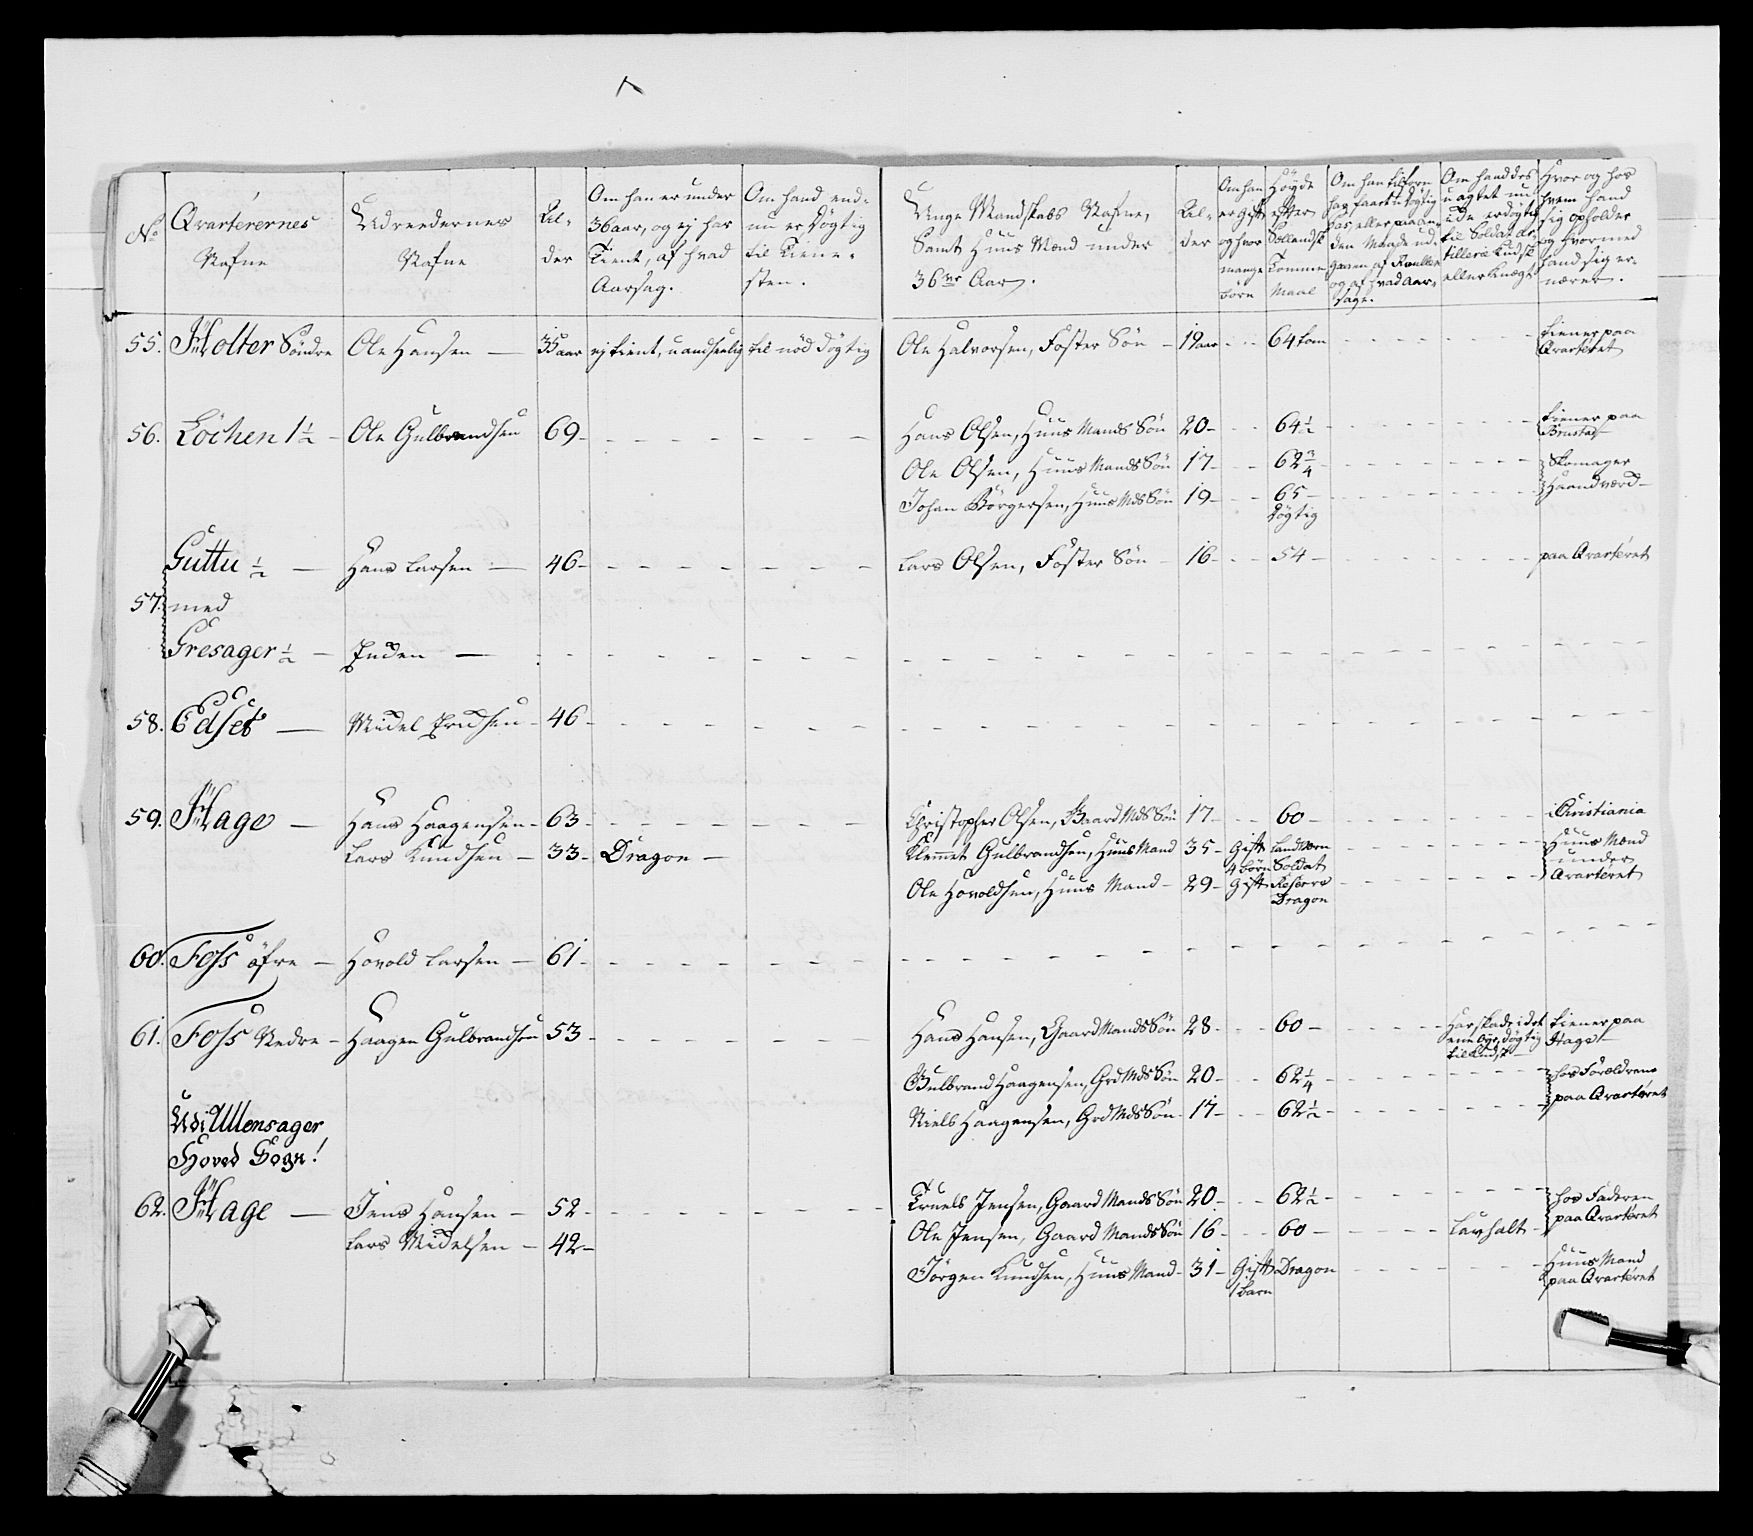 No
Qvarterernes Nafne
Udreedernes Nafne
Alder
Om han er under 36 aar, og ej har Tient, af hvad Aarsag.
Om hand endnu er Døgtig til Tienesten.
Unge Mandskabs Nafne, Samt Huus Mænd under 36 Aar.
Alder
Om han er Gift og hvor mange børn
Høyde efter Sollandsk Tomme Maal
Om han tilforn har faaet udygtig Pas, eller paa anden Maade udgaaen af Rullen og af hvad Aarsage.
Om hand des uagtet nu ude er døgtig til Soldat Artillerie Kudsk eller Knægt
Hvor og hos hvem hand sig opholder og hvormed hand sig ernærer.
55. Holter Søndre Ole Hansen — 35 aar ej tient, uandseelig til nød døgtig Ole Halvorsen, Foster Søn — 19 aar 64 tom tiener paa Qvarteret
56. Løchen 1½ — Ole Gulbrandsen 69 Hans Olsen, Huus Mands Søn 20 — 64½ tiener paa Brustad
Ole Olsen, Huus Mands Søn 17 — 62¾ Skomager
Johan Børgersen, Huus Mds Søn 19 — 65 — Døgtig Haandværk
Guttu ½ — Hans Larsen — 46 Lars Olsen, Foster Søn — 16 — 54 — paa Qvarteret
57. med
Gresager ½ — Inden —
58. Edset — Midel Knudsen — 46
59. Hage — Hans Haagensen — 63 Christopher Olsen, Gaard Mds Søn 17 — 60 — i Christiania
Lars Knudsen — 33 — Dragon — Klemmet Gulbrandsen, Huus Mand 35 — Gift 4 børn Landværn Soldat Huus Mænd
Ole Hovoldsen, Huus Mand — 29 — Gift Reserve Dragon under Qvarteret
60. Foss øfre — Hovold Larsen — 61
61. Foss Nedre — Haagen Gulbrandsen 53 Hans Hansen, Gaard Mands Søn 28 — 60 — Har skade i det ene Øye, døgtig til Kudsk tiener paa Hage
Gulbrand Haagensen, Grd Mds Søn 20 — 62¼ hos Forældrene
Niels Haagensen, Grd Mds Søn 17 — 62½ paa Qvarteret
Udi Ullensager
Hoved Sogn!
62. Hage — Jens Hansen — 52 Truels Jensen, Gaard Mands Søn 20 — 62½ hos Faderen
Lars Midelsen — 42 — Ole Jensen, Gaard Mands Søn 16 — 60 — Lavhalt — paa Qvarteret
Jørgen Knudsen, Huus Mand — 31 — Gift 1 barn Dragon Huus Mand paa Qvarteret